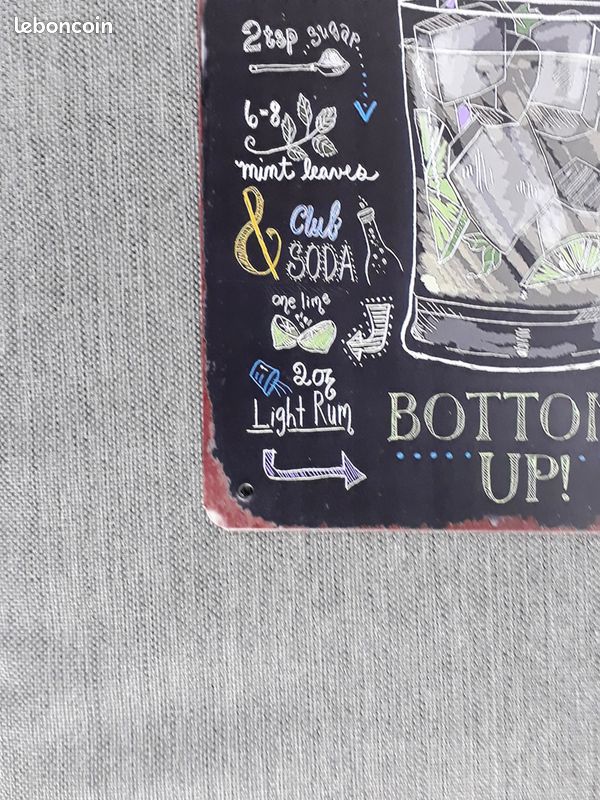 leboncoin
2 tsp sugar
6-8
mint leaves
& Club
SODA
one lime
2 oz
Light Rum
BOTTOM
UP!